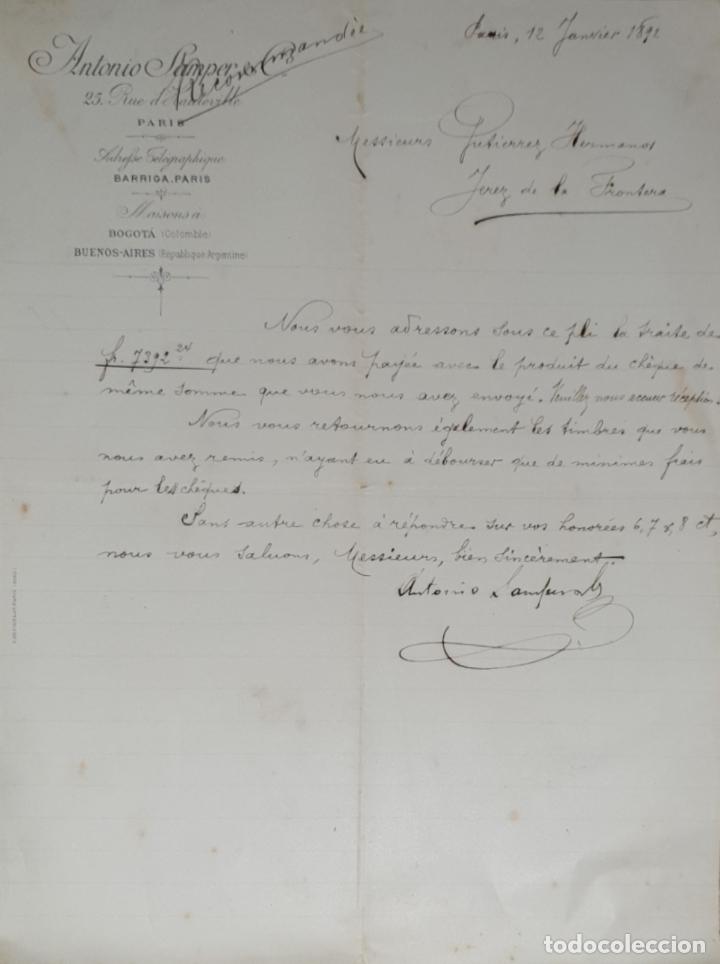 Antonio Samper & Co
Recommandée
25. Rue d'Hauteville
PARIS
Adresse Télégraphique
BARRIGA. PARIS
Maisons à
BOGOTÁ (Colombie)
BUENOS-AIRES (République Argentine)
Paris, 12 Janvier 1892
Messieurs Gutierrez Hermanos
Jerez de la Frontera
Nous vous adressons sous ce pli la traite de
fr. 7392 24 que nous avons payée avec le produit du chèque de
même somme que vous nous avez envoyé. Veuillez nous accuser réception.
Nous vous retournons également les timbres que vous
nous avez remis, n'ayant eu à débourser que de minimes frais
pour les chèques.
Sans autre chose à répondre sur vos honorées 6, 7 & 8 ct,
nous vous saluons, Messieurs, bien sincèrement.
Antonio Samper & Co
todocoleccion